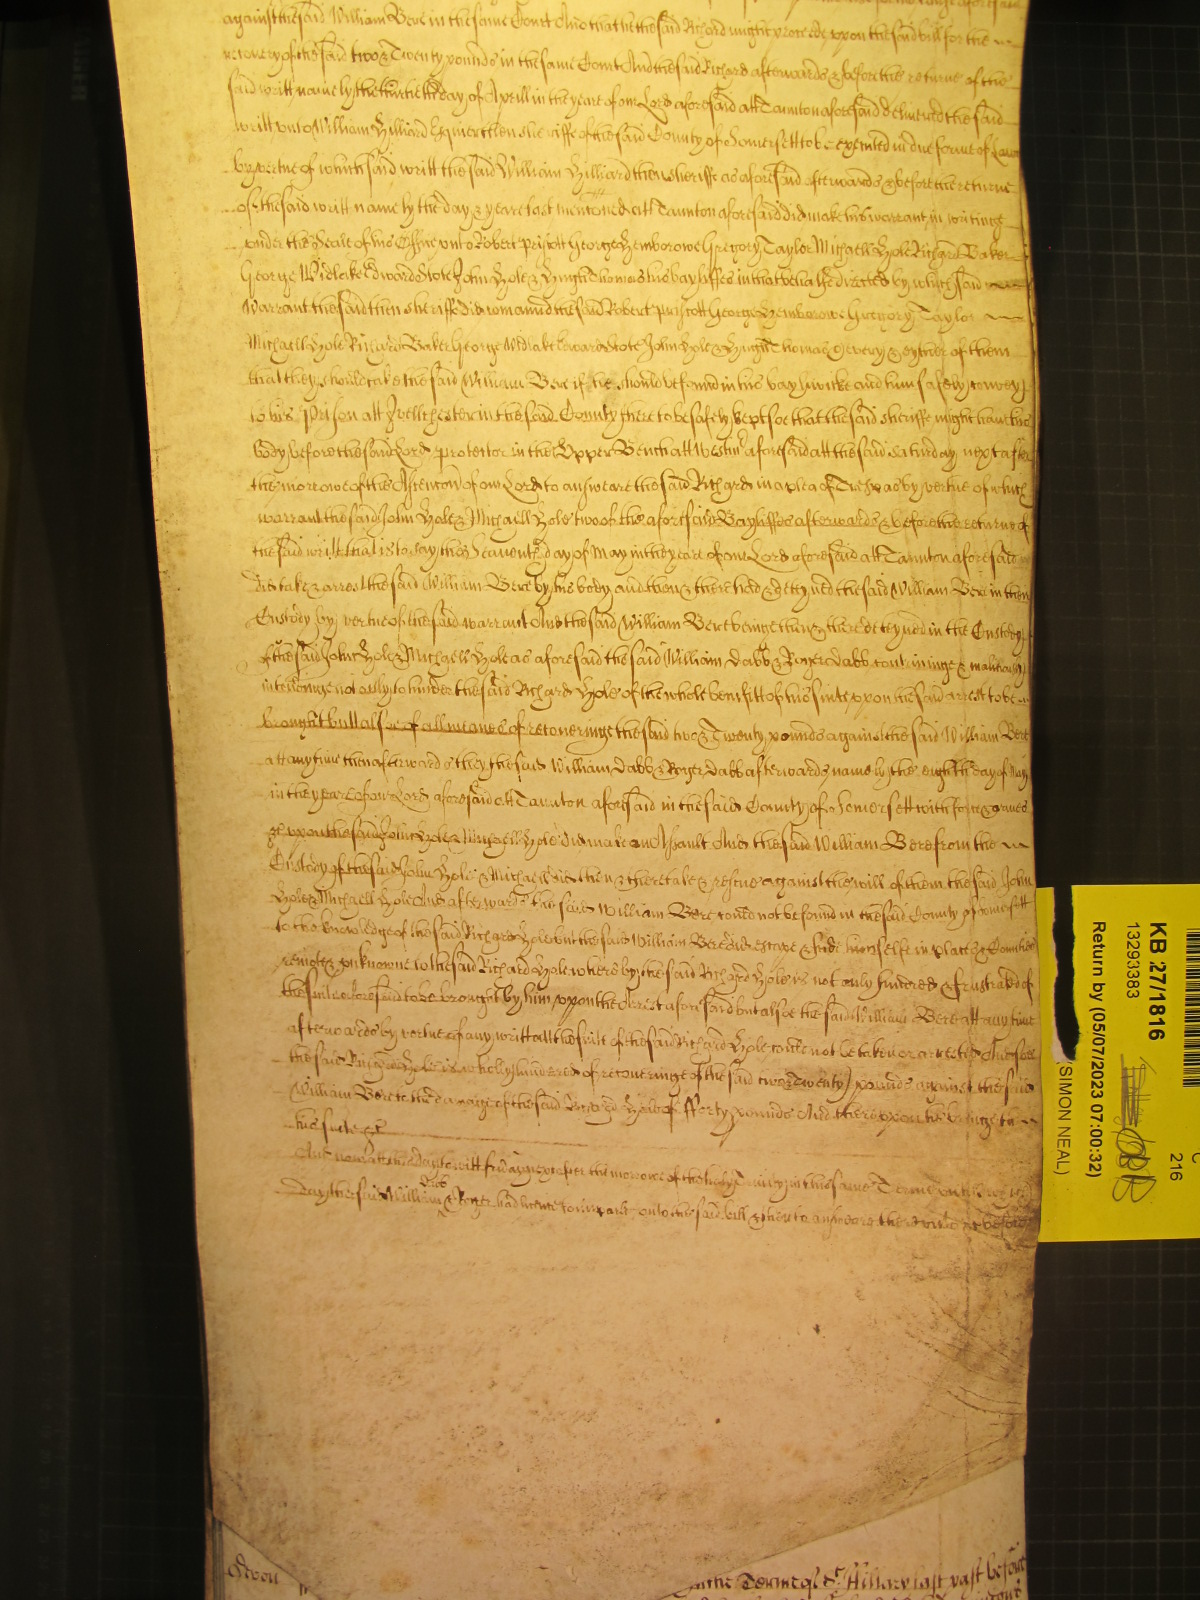 against the said William Bere in the same Court And that he the said Richard might procede upon the said bill for the
recovery of the said two & Twenty pounds in the same Court And the said Richard afterwards & before the returne of the
said writt namely the day of Aprill in the yeare of our Lord aforesaid att Taunton aforesaid delivered the said
writt unto William Hilliard Esquier then sheriffe of the said County of Somersett to be executed in due forme of Lawe
by vertue of which said writt the said William Hilliard then sheriffe as aforesaid afterwards & before the returne
of the said writt namely the day & yeare last mentioned att Taunton aforesaid did make his warrant in writing
under the Seale of his Office unto Robert Priscott George Hemborowe Gregory Taylor Michaell Hole Richard Baker
George Widlake Edward Stote John Hole & Hugh Thomas his bayliffes in that behalfe directed by which said
Warrant the said then sheriffe did comaund the said Robert Priscott George Hemborowe Gregory Taylor
Michaell Hole Richard Baker George Widlake Edward Stote John Hole & Hugh Thomas & every & eyther of them
that they should take the said William Bere if he should be found in his bayliwicke and him safely convey
to his Prison att Ivellchester in the said County there to be safely kept soe that the said sheriffe might have his
body before the said Lord protector in the Upper Bench att Westmr aforesaid att the said Saturday next after
the morrowe of the Ascencon of our Lord to answeare the said Richard in a plea of Trespas by vertue of which
warrant the said John Hole & Michaell Hole two of the aforesaid Bayliffes afterwards & before the returne of
the said writt that is to say the Seaventh day of May in the yeare of our Lord aforesaid att Taunton aforesaid
did take & arrest the said William Bere by his body and then & there had & deteyned the said William Bere in their
Custody by vertue of the said warrant And the said William Bere beinge then & there deteyned in the Custody
of the said John Hole & Michaell Hole as aforesaid the said William Dabb & Roger Dabb contriveinge & maliciously
intendinge not only to hinder the said Richard Hole of the whole benifitt of his suite upon the said arrest to be
brought but alsoe of all meanes of recoveringe the said two & Twenty pounds against the said William Bere
att any time then afterwards they the said William Dabb & Roger Dabb afterwards namely the eighth day of May
in the yeare of our Lord aforesaid att Taunton aforesaid in the said County of Somersett with force & armes
&c upon the said John Hole & Michaell Hole did make an Assault And the said William Bere from the
Custody of the said John Hole & Michaell did then & there take & rescue against the will of them the said John
Hole & Michaell Hole And afterwards the said William Bere could not be found in the said County of Somersett
to the knowledge of the said Richard Hole but the said William Bere did escape & hide himselfe in places & Counties
remote & unknowne to the said Richard Hole whereby the said Richard Hole is not only hindered & frustrated of
the suite aforesaid to be brought by him upon the Arrest aforesaid but alsoe the said William Bere att any time
afterwards by vertue of any writt att the suite of the said Richard Hole could not be taken or arrested And soe
the said Richard Hole is wholly hindered of recoveringe of the said two & Twenty pounds against the said
William Bere to the damage of the said Richard Hole of fforty pounds And thereupon he bringeth
his suite &c
And now att this day to witt friday next after the morrowe of the holy Trinity in this same Terme untill which
Dabb
Day the said William & Roger had licence to imparle unto the said bill & then to answere the
Devon
the Terme of St Hillary last past before
KB 27/1816
13293383
Return by (05/07/2023 07:00:32)
(SIMON NEAL)
216